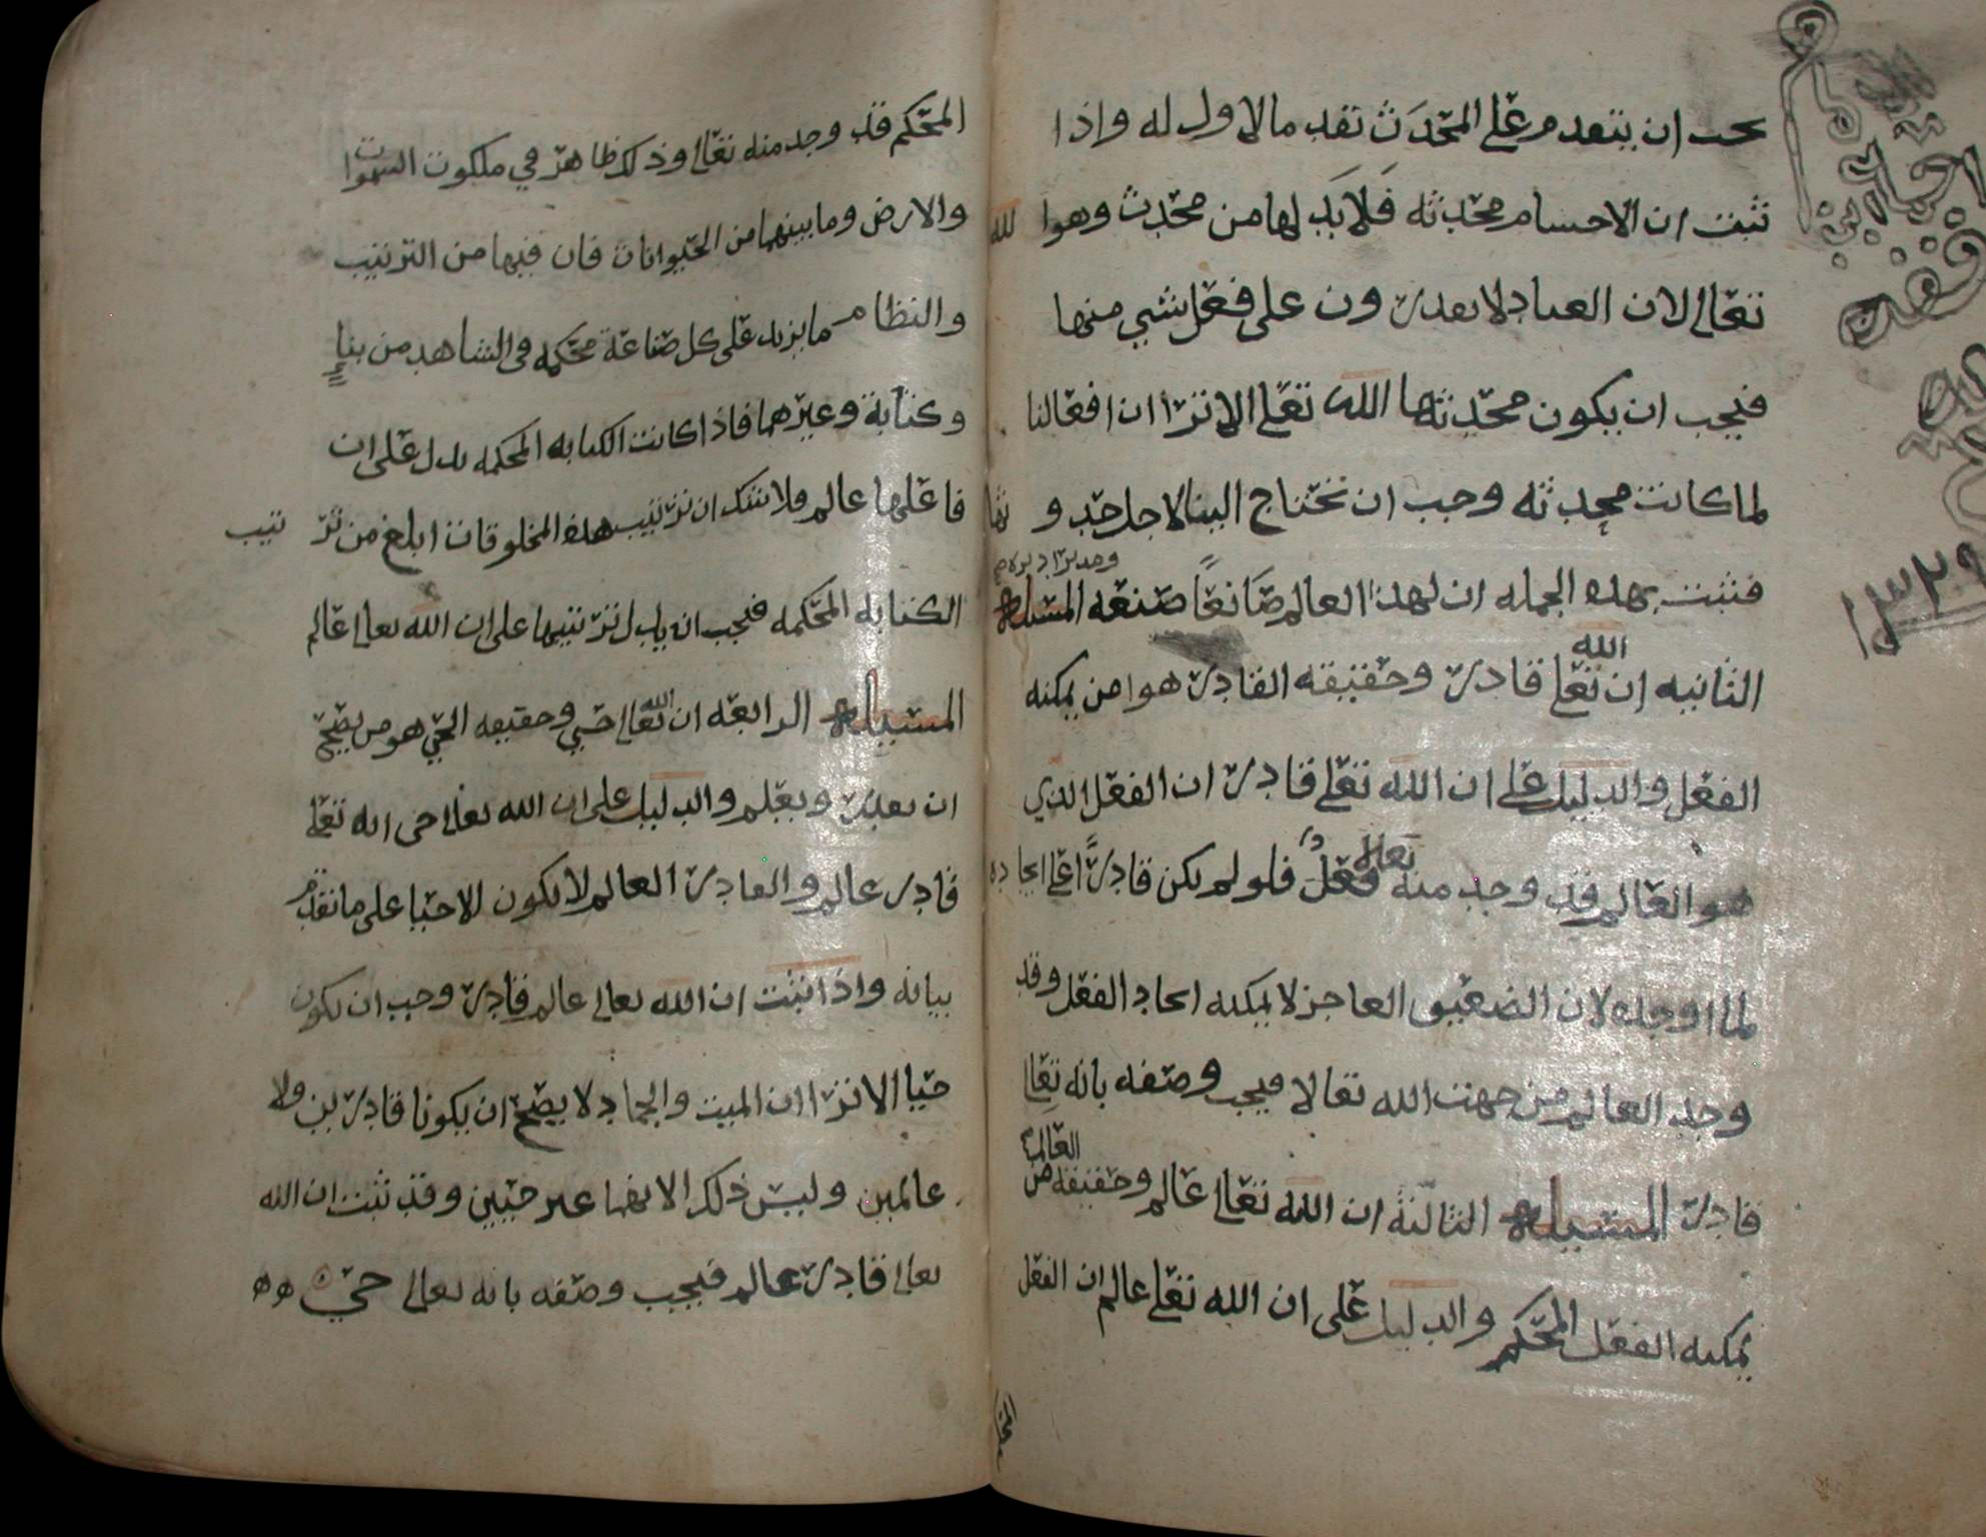 يجب ان يتقدم على المحدث تقدم مالا اول له واذا
ثبت ان الاجسام محدثه فلا بد لها من محدث وهوا الله
تعالى لان العباد لا يقدرون على فعل شي منها
فيجب ان يكون محدثها الله تعالى الا ترا ان افعالنا
لما كانت محدثه وجب ان تحتاج الينا لاجل حد وثها
فثبت بهذه الجمله ان لهذا العالم صانعًا صنعه المسئله
الثانيه ان الله تعالى قادر وحقيقه القادر هوا من يمكنه
الفعل والدليل على ان الله تعالى قادر ان الفعل الذي
هو العالم قد وجد منه تعالى فعلٌ فلو لم يكن قادرًا على ايجاده
لما اوجده لان الضعيف العاجز لا يمكنه ايجاد الفعل وقد
وجد العالم من جهت الله تعالا فيجب وصفه بانه تعالى
قادر المسئله الثالثة ان الله تعالى عالم وحقيقة العالم من
يمكنه الفعل المحكم والدليل على ان الله تعالى عالم ان الفعل
المحكم قد وجد منه تعالى وذلك ظاهر في ملكوت السموات
والارض وما بينهما من الحيوانات فان فيها من الترتيب
والنظام ما يزيد على كل صناعة محكمه في الشاهد من بناءٍ
وكتابة وغيرهما فاذا كانت الكتابه المحكمه تدل على ان
فاعلها عالم ولا شك ان ترتيب هذه المخلوقات ابلغ من تر تيب
الكتابه المحكمه فيجب ان يدل ترتيبها على ان الله تعالى عالم
المسئله الرابعه ان الله تعالى حي وحقيقه الحي هو من يصح
ان يقدر ويعلم والدليل على ان الله تعالى حي انه تعالى
قادر عالم والقادر العالم لا يكون الا حيا على ما تقدم
بيانه واذا ثبت ان الله تعالى عالم قادر وجب ان يكون
حيا الا ترا ان الميت والجماد لا يصح ان يكونا قادرين ولا
عالمين وليس ذلك الا انهما غير حيين وقد ثبت ان الله
تعالى قادر عالم فيجب وصفه بانه تعالى حي
١٣٢٩